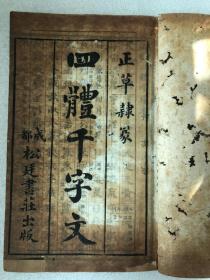 正草隸篆
四體千字文
成都
松廷書莊出版